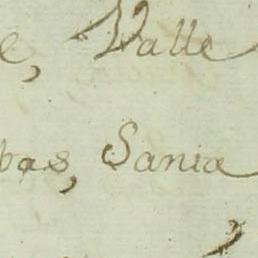 e, Valle
bas, Sania
,